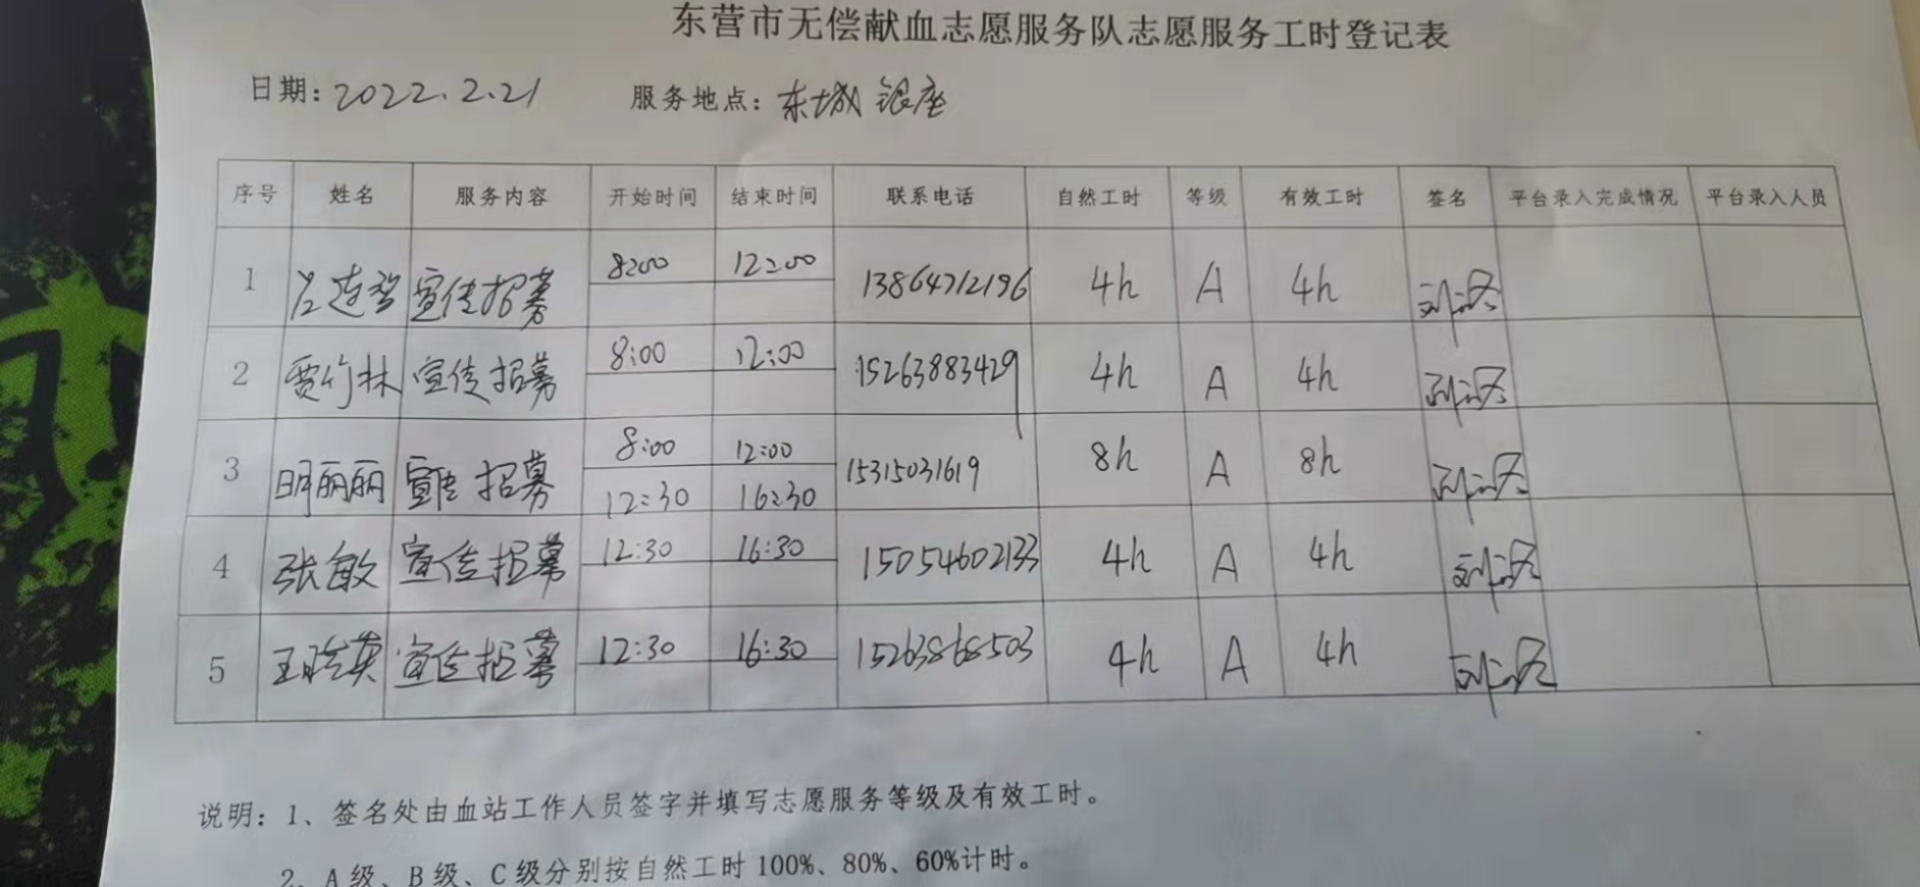 东营市无偿献血志愿服务队志愿服务工时登记表
日期: 2022.2.21 服务地点: 东城银座
序号 姓名 服务内容 开始时间 结束时间 联系电话 自然工时 等级 有效工时 签名 平台录入完成情况 平台录入人员
1 宣传招募 8:00 12:00 13864712196 4h A 4h
2 贾竹林 宣传招募 8:00 12:00 15263883429 4h A 4h
3 明丽丽 宣传招募 8:00 12:00 15315031619 8h A 8h
12:30 16:30
4 张敏 宣传招募 12:30 16:30 15054602133 4h A 4h
5 宣传招募 12:30 16:30 15263868503 4h A 4h
说明: 1、签名处由血站工作人员签字并填写志愿服务等级及有效工时。
2、A级、B级、C级分别按自然工时100%、80%、60%计时。